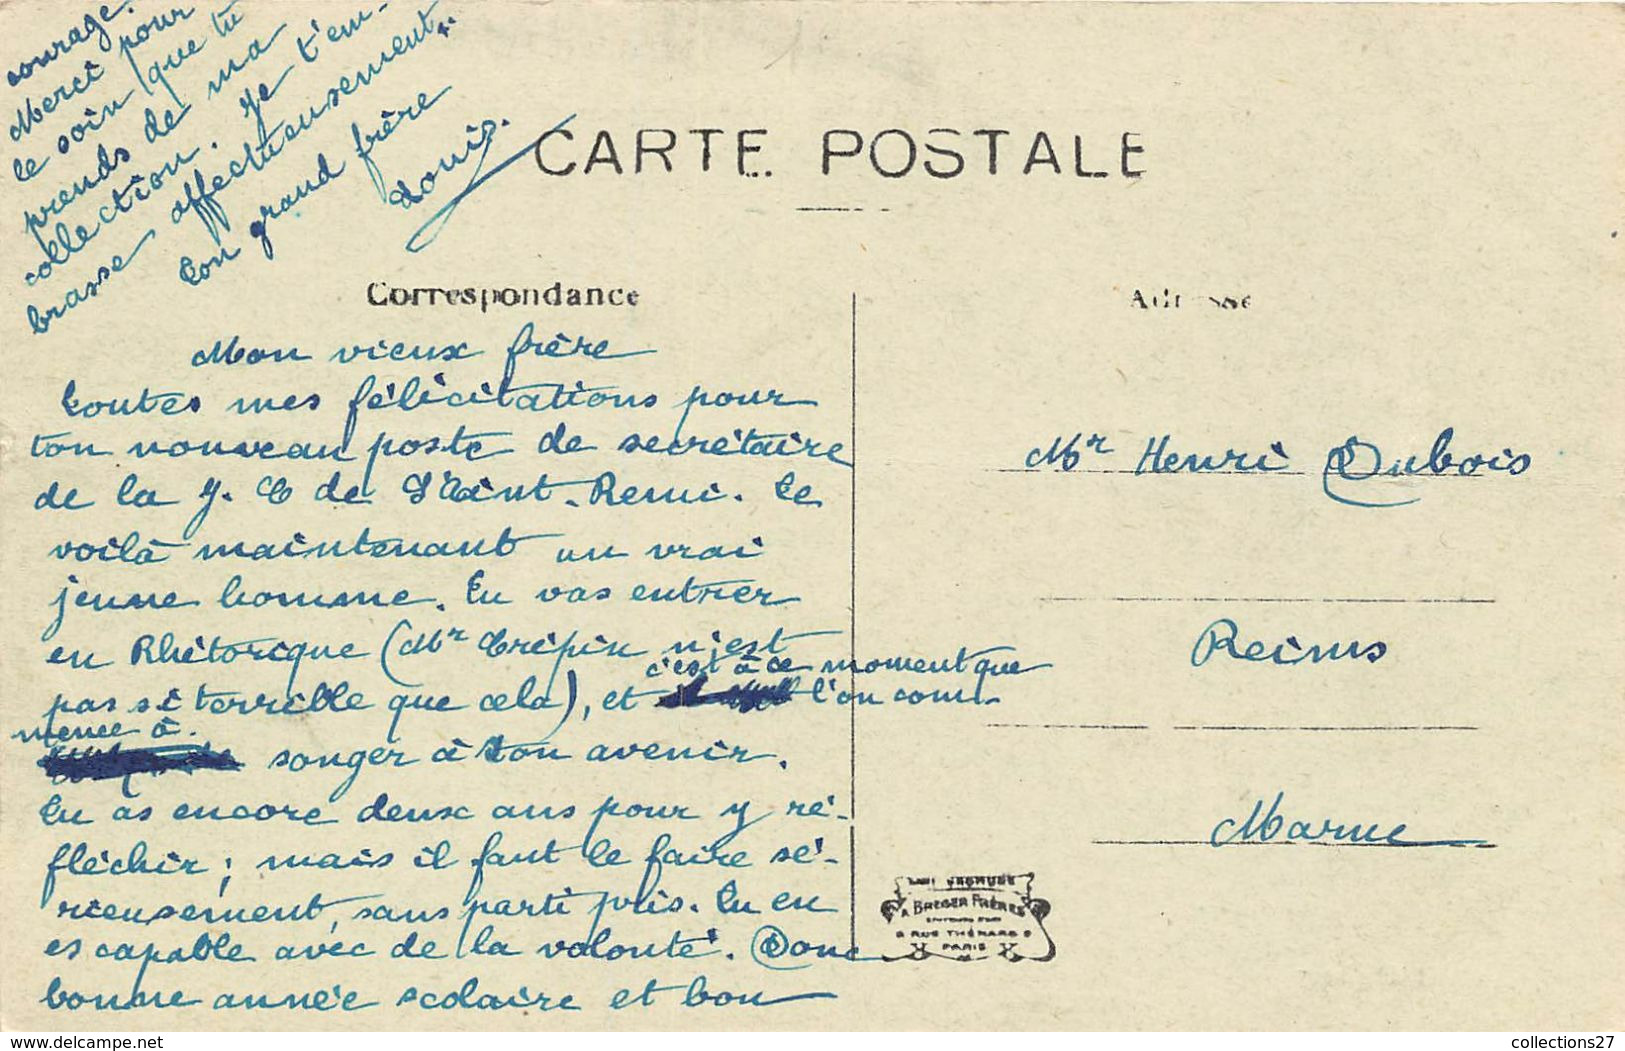 CARTE POSTALE
Correspondance
Mon vieux frère
Toutes mes félicitations pour
ton nouveau poste de secrétaire
de la J. C de Saint-Remi. Te
voilà maintenant un vrai
jeune homme. Tu vas entrer
en Rhétorique (Mr Crépin n'est
pas si terrible que cela), et c'est à ce moment que l'on com-
mence à songer à ton avenir.
Tu as encore deux ans pour y ré-
fléchir ; mais il faut le faire sé-
rieusement, sans parti pris. Tu en
es capable avec de la volonté. Donc
bonne année scolaire et bon
courage.
Merci pour
le soin que tu
prends de ma
collection. Je t'em-
brasse affectueusement.
Ton grand frère
Louis.
Adresse
Mr Henri Dubois
Reims
Marne
A BREGER FRÈRES
9 RUE THÉNARD 9
PARIS
www.delcampe.net
collections27